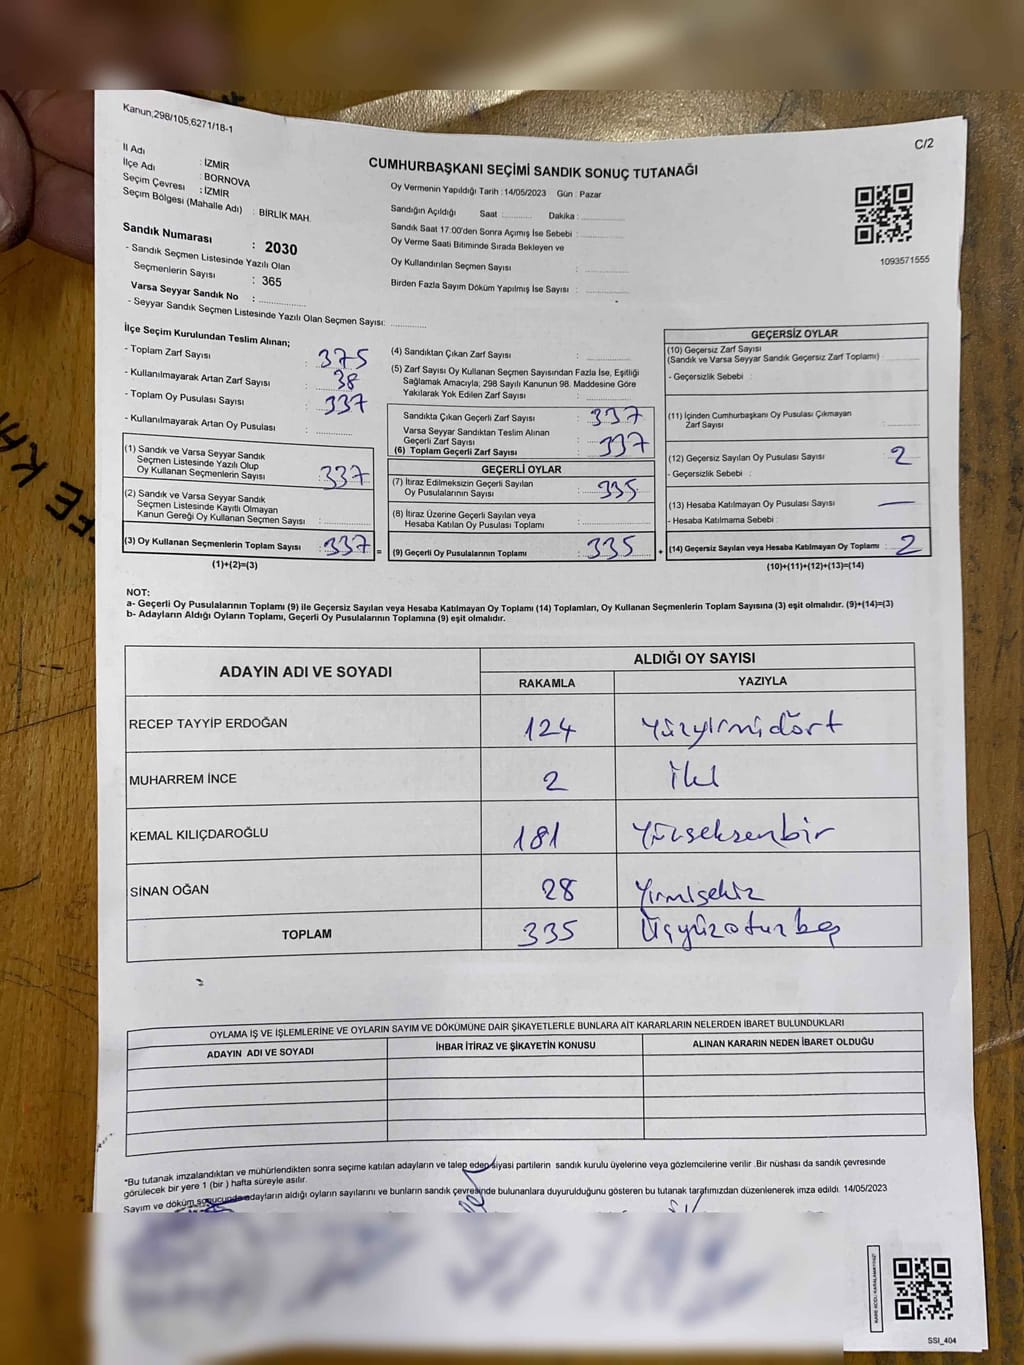 Kanun;298/105,6271/18-1
C/2
İl Adı : İZMİR
İlçe Adı : BORNOVA
Seçim Çevresi : İZMİR
Seçim Bölgesi (Mahalle Adı) : BİRLİK MAH.
Sandık Numarası : 2030
- Sandık Seçmen Listesinde Yazılı Olan
Seçmenlerin Sayısı : 365
Varsa Seyyar Sandık No : ..............
- Seyyar Sandık Seçmen Listesinde Yazılı Olan Seçmen Sayısı: ............
CUMHURBAŞKANI SEÇİMİ SANDIK SONUÇ TUTANAĞI
Oy Vermenin Yapıldığı Tarih : 14/05/2023 Gün : Pazar
Sandığın Açıldığı Saat ............ Dakika : ..............
Sandık Saat 17:00'den Sonra Açımış İse Sebebi : ..............
Oy Verme Saati Bitiminde Sırada Bekleyen ve
Oy Kullandırılan Seçmen Sayısı : ..............
Birden Fazla Sayım Döküm Yapılmış İse Sayısı : ..............
1093571555
İlçe Seçim Kurulundan Teslim Alınan;
- Toplam Zarf Sayısı : 375
- Kullanılmayarak Artan Zarf Sayısı : 38
- Toplam Oy Pusulası Sayısı : 337
- Kullanılmayarak Artan Oy Pusulası : ............
(1) Sandık ve Varsa Seyyar Sandık
Seçmen Listesinde Yazılı Olup
Oy Kullanan Seçmenlerin Sayısı : 337
(2) Sandık ve Varsa Seyyar Sandık
Seçmen Listesinde Kayıtlı Olmayan
Kanun Gereği Oy Kullanan Seçmen Sayısı : ............
(3) Oy Kullanan Seçmenlerin Toplam Sayısı : 337 =
(1)+(2)=(3)
(4) Sandıktan Çıkan Zarf Sayısı : ............
(5) Zarf Sayısı Oy Kullanan Seçmen Sayısından Fazla İse, Eşitliği
Sağlamak Amacıyla; 298 Sayılı Kanunun 98. Maddesine Göre
Yakılarak Yok Edilen Zarf Sayısı : ............
Sandıkta Çıkan Geçerli Zarf Sayısı : 337
Varsa Seyyar Sandıktan Teslim Alınan
Geçerli Zarf Sayısı
(6) Toplam Geçerli Zarf Sayısı : 337
GEÇERLİ OYLAR
(7) İtiraz Edilmeksizin Geçerli Sayılan
Oy Pusulalarının Sayısı : 335
(8) İtiraz Üzerine Geçerli Sayılan veya
Hesaba Katılan Oy Pusulası Toplamı : ............
(9) Geçerli Oy Pusulalarının Toplamı : 335 +
GEÇERSİZ OYLAR
(10) Geçersiz Zarf Sayısı
(Sandık ve Varsa Seyyar Sandık Geçersiz Zarf Toplamı) : ............
- Geçersizlik Sebebi :
(11) İçinden Cumhurbaşkanı Oy Pusulası Çıkmayan
Zarf Sayısı : ............
(12) Geçersiz Sayılan Oy Pusulası Sayısı : 2
- Geçersizlik Sebebi :
(13) Hesaba Katılmayan Oy Pusulası Sayısı : —
- Hesaba Katılmama Sebebi :
(14) Geçersiz Sayılan veya Hesaba Katılmayan Oy Toplamı : 2
(10)+(11)+(12)+(13)=(14)
NOT:
a- Geçerli Oy Pusulalarının Toplamı (9) ile Geçersiz Sayılan veya Hesaba Katılmayan Oy Toplamı (14) Toplamları, Oy Kullanan Seçmenlerin Toplam Sayısına (3) eşit olmalıdır. (9)+(14)=(3)
b- Adayların Aldığı Oyların Toplamı, Geçerli Oy Pusulalarının Toplamına (9) eşit olmalıdır.
ADAYIN ADI VE SOYADI
ALDIĞI OY SAYISI
RAKAMLA YAZIYLA
RECEP TAYYİP ERDOĞAN 124 Yüzyirmidört
MUHARREM İNCE 2 İki
KEMAL KILIÇDAROĞLU 181 Yüzseksenbir
SİNAN OĞAN 28 Yirmisekiz
TOPLAM 335 Üçyüzotuzbeş
OYLAMA İŞ VE İŞLEMLERİNE VE OYLARIN SAYIM VE DÖKÜMÜNE DAİR ŞİKAYETLERLE BUNLARA AİT KARARLARIN NELERDEN İBARET BULUNDUKLARI
ADAYIN ADI VE SOYADI İHBAR İTİRAZ VE ŞİKAYETİN KONUSU ALINAN KARARIN NEDEN İBARET OLDUĞU
"Bu tutanak imzalandıktan ve mühürlendikten sonra seçime katılan adayların ve talep eden siyasi partilerin sandık kurulu üyelerine veya gözlemcilerine verilir .Bir nüshası da sandık çevresinde
görülecek bir yere 1 (bir ) hafta süreyle asılır.
Sayım ve döküm sonucunda adayların aldığı oyların sayılarını ve bunların sandık çevresinde bulunanlara duyurulduğunu gösteren bu tutanak tarafımızdan düzenlenerek imza edildi. 14/05/2023
SSI_404